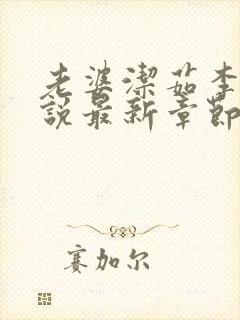 老婆潔茹李
說最新章節
赛加尔